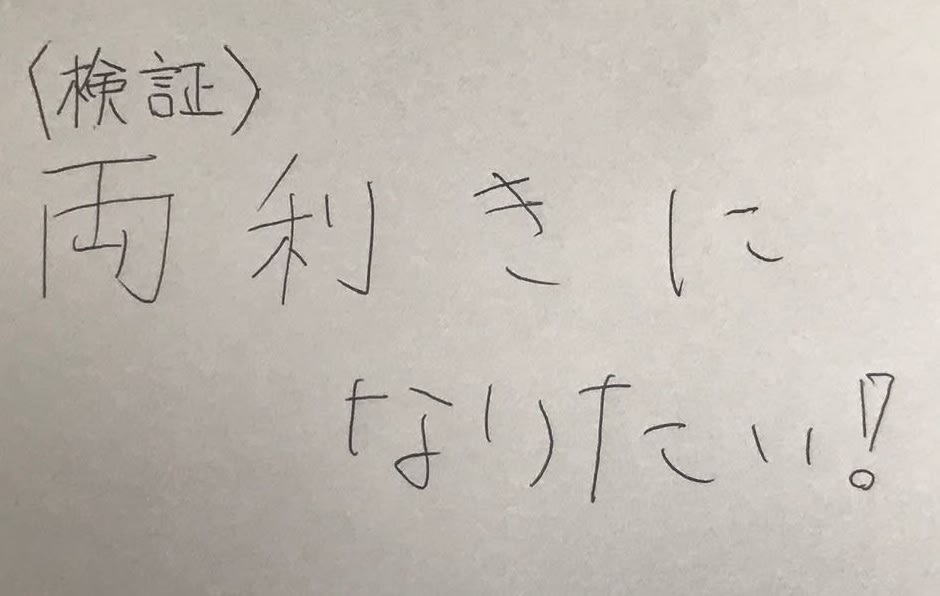 〈検証〉
両利きに
なりたい!